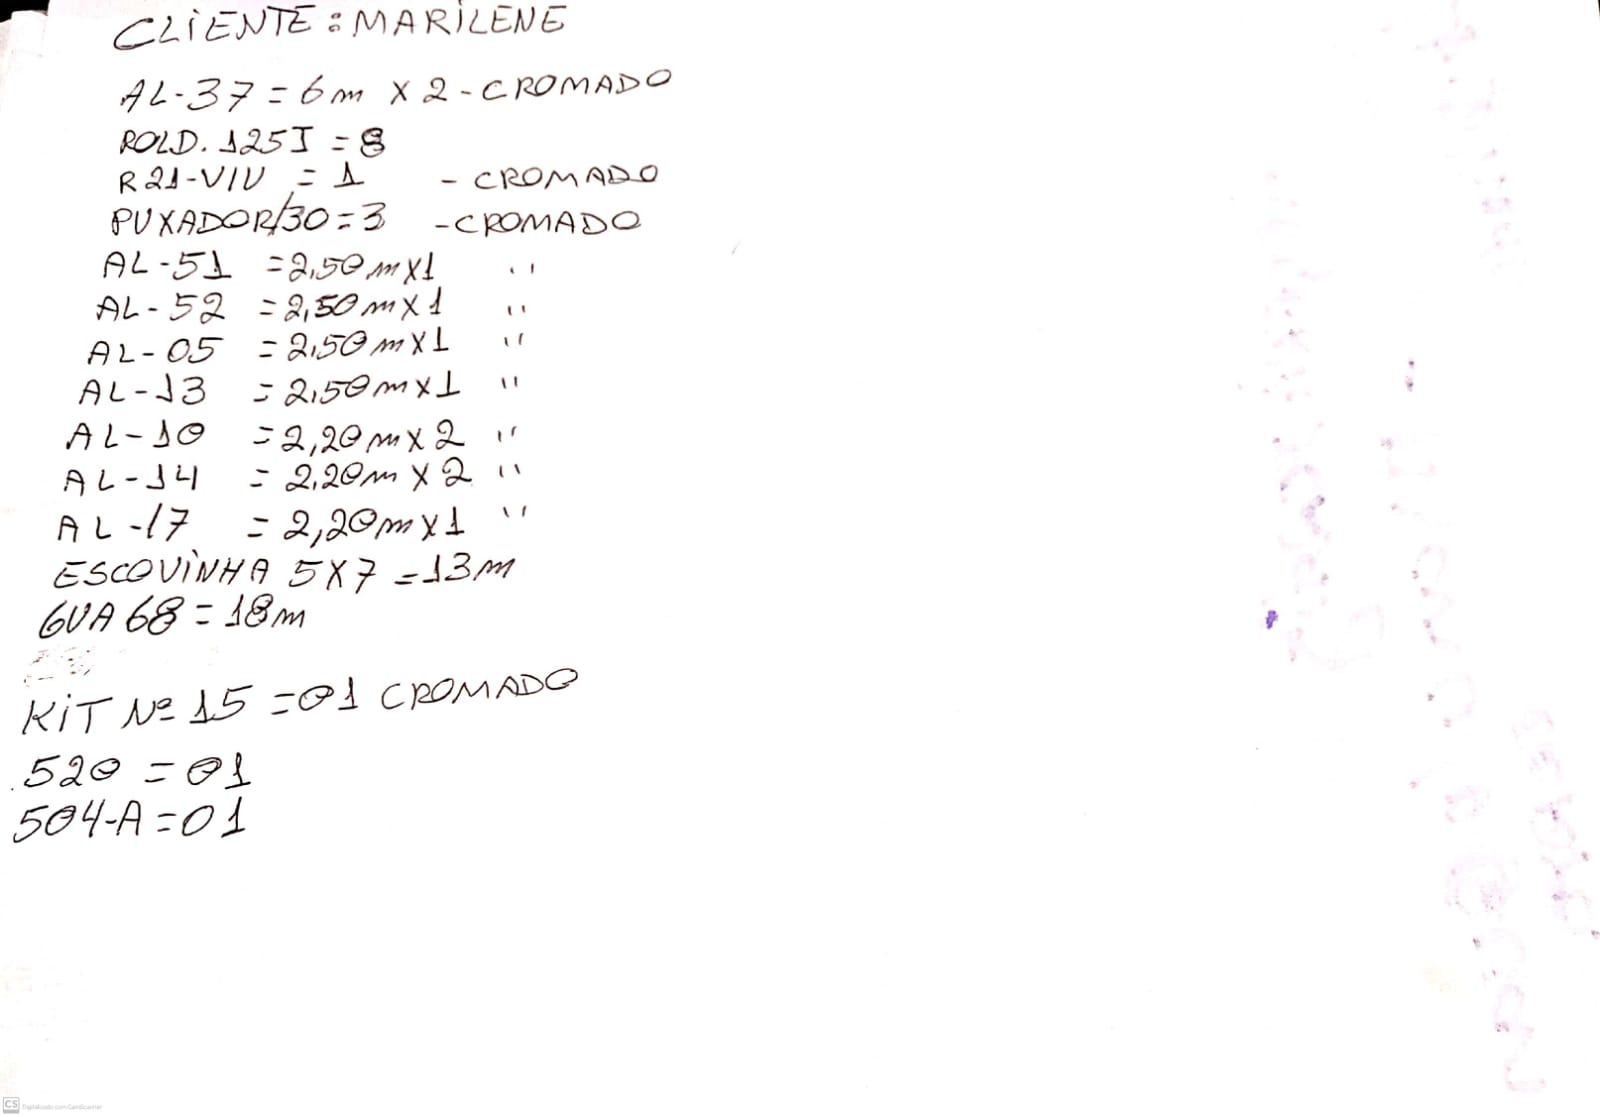 CLIENTE: MARILENE
AL-37 = 6m X 2 - CROMADO
ROLD. 125I = 8
R21-VIV = 1 - CROMADO
PUXADOR/30 = 3 - CROMADO
AL-51 = 2,50 m X 1 "
AL-52 = 2,50 m X 1 "
AL-05 = 2,50 m X 1 "
AL-13 = 2,50 m X 1 "
AL-10 = 2,20 m X 2 "
AL-14 = 2,20 m X 2 "
AL-17 = 2,20 m X 1 "
ESCOVINHA 5X7 = 13m
GUA 68 = 18m
KIT Nº 15 = 01 CROMADO
520 = 01
504-A = 01
CS Digitalizado com CamScanner